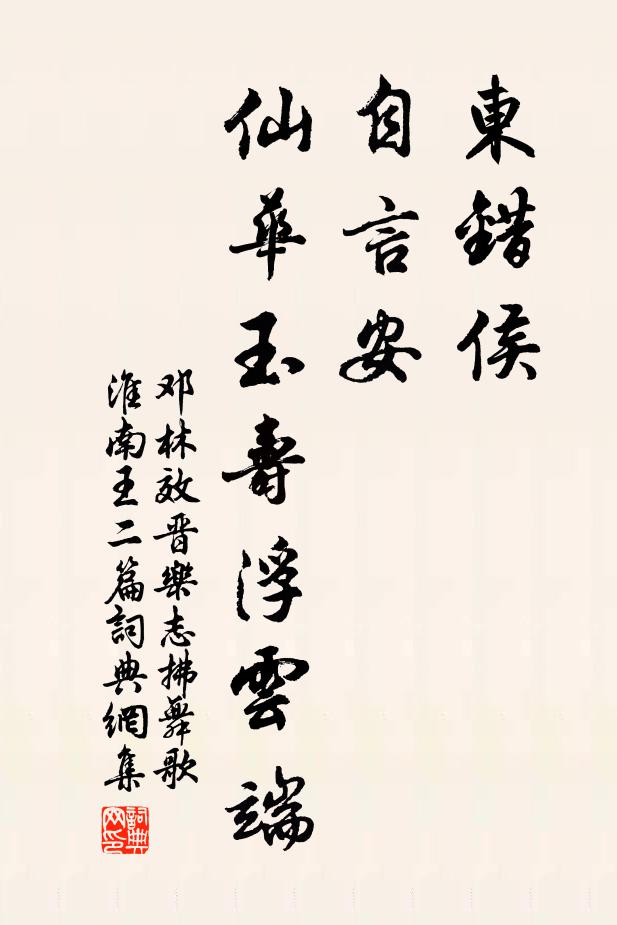 東錯侯
自言安
仙華玉壽浮雲端
邓林效晋樂志拂舞歌
淮南王二篇詞典網集
詞典網印